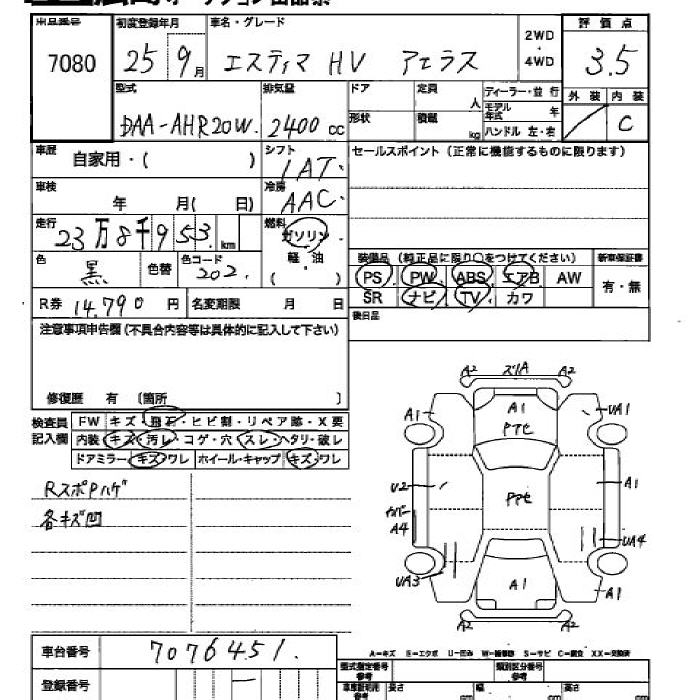 初度登録年月
車名・グレード
2WD
・
4WD
評価点
7080
25 9月
エスティマ HV アエラス
3.5
型式
排気量
ドア
定員
人
ディーラー・並行
外装
内装
DAA-AHR20W.
2400 cc
形状
積載
kg
モデル年式
年
ハンドル 左・右
C
車歴
自家用・( )
シフト
IAT.
セールスポイント (正常に機能するものに限ります)
車検
年 月( 日)
冷房
AAC.
走行
23万8千953. km
燃料
ガソリン・軽・油
( )
色
黒
色替
色コード
202.
装備品 (純正品に限り○をつけてください)
新車保証書
PS PW ABS エアB AW
有・無
SR ナビ TV カワ
R券 14,790 円
名変期限 月 日
後日品
注意事項申告欄(不具合内容等は具体的に記入して下さい)
修復歴 有 〔箇所 〕
検査員記入欄
FW キズ・飛石・ヒビ割・リペア跡・X要
内装 キズ・汚レ・コゲ・穴・スレ・ヘタリ・破レ
ドアミラー・キズ・ワレ ホイール・キャップ・キズ・ワレ
RスポPハゲ
各キズ凹
A2 ズレA A2
A1 A1 UA1
PアセU2
A1
カバー
A4
UA4
UA3 A1 A1
A2 A2
A=キズ E=エクボ U=凹み W=補修跡 S=サビ C=腐食 XX=交換済
車台番号
7076451.
型式指定番号
参考
類別区分番号
参考
登録番号
長さ cm 幅 cm 高さ cm